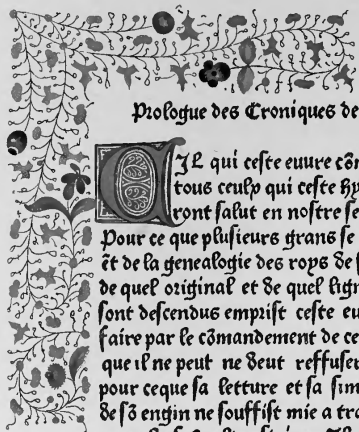 Prologue des Croniques de
CIL qui ceste euure cōm
tous ceulx qui ceste hy
ront salut en nostre se
Pour ce que plusieurs grans se
ēt de la genealogie des roys de
de quel original et de quel lign
sont descendus emprist ceste eu
faire par le cōmandement de ce
que il ne peut ne deut reffuser
pour ceque sa letture et sa sim
de sō engin ne souffist mie a tra